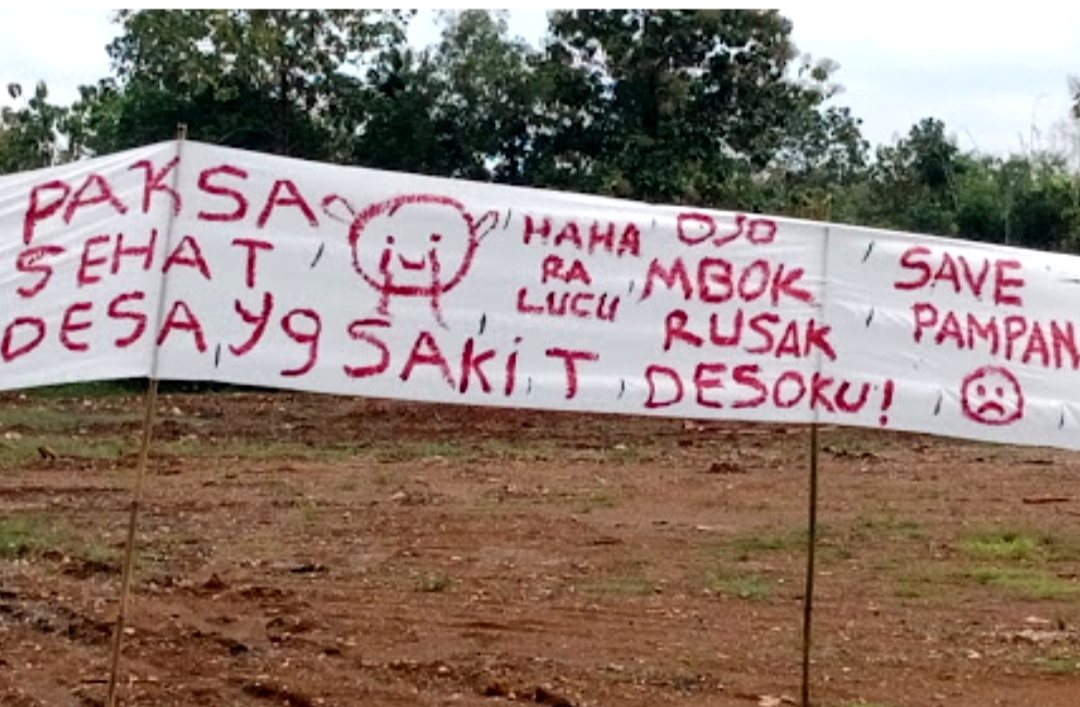 PAKSA
SEHAT
DESA yg SAKiT
HAHA
RA
LUCU
OJO
MBOK
RUSAK
DESOKU!
SAVE
PAMPAN